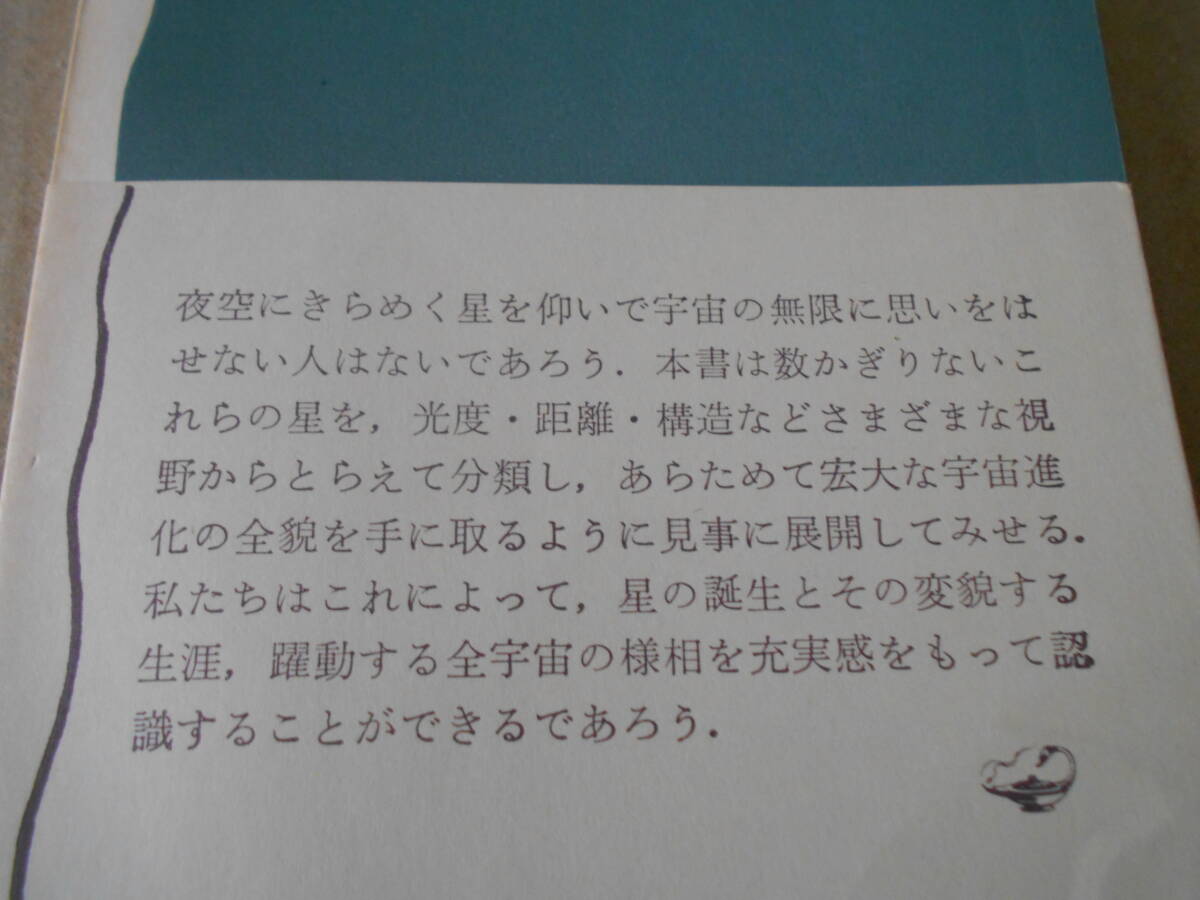 夜空にきらめく星を仰いで宇宙の無限に思いをは
せない人はないであろう．本書は数かぎりないこ
れらの星を，光度・距離・構造などさまざまな視
野からとらえて分類し，あらためて宏大な宇宙進
化の全貌を手に取るように見事に展開してみせる．
私たちはこれによって，星の誕生とその変貌する
生涯，躍動する全宇宙の様相を充実感をもって認
識することができるであろう．